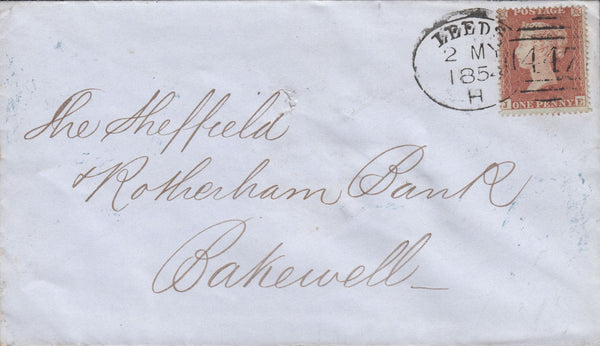 LEEDS
2 MY
1854
H
POSTAGE
447
ONE PENNY
J E
The Sheffield
& Rotherham Bank
Bakewell